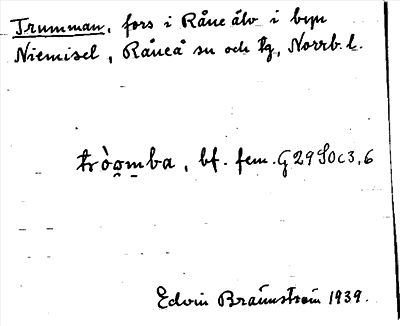 Trumman, fors i Råne älv i byn
Niemisel, Råneå sn och tg, Norrb. l.
trò̰o̰m̱ba, bf. fem. G29S0c3,6
Edvin Brännström 1939.